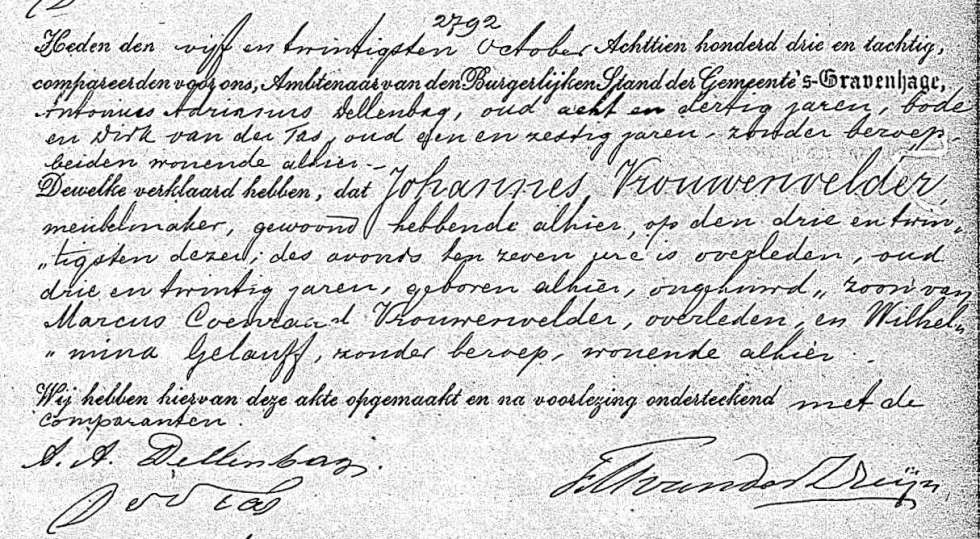 2792
Heden den vijf en twintigsten October Achttien honderd drie en tachtig,
compareerden voor ons, Ambtenaar van den Burgerlijken Stand der Gemeente 's-Gravenhage,
Antonius Adrianus Dellenbag, oud acht en dertig jaren, bode
en Dirk van der Tas, oud een en zestig jaren, zonder beroep,
beiden wonende alhier.-
Dewelke verklaard hebben, dat Johannes Vrouwenvelder,
meubelmaker, gewoond hebbende alhier, op den drie en twin„
„tigsten dezer, des avonds ten zeven ure is overleden, oud
drie en twintig jaren, geboren alhier, ongehuwd, zoon van
Marcus Coenraad Vrouwenvelder, overleden, en Wilhel„
„mina Gelauff, zonder beroep, wonende alhier.
Wij hebben hiervan deze akte opgemaakt en na voorlezing onderteekend met de
comparanten.
A. A. Dellenbag.
D v d Tas